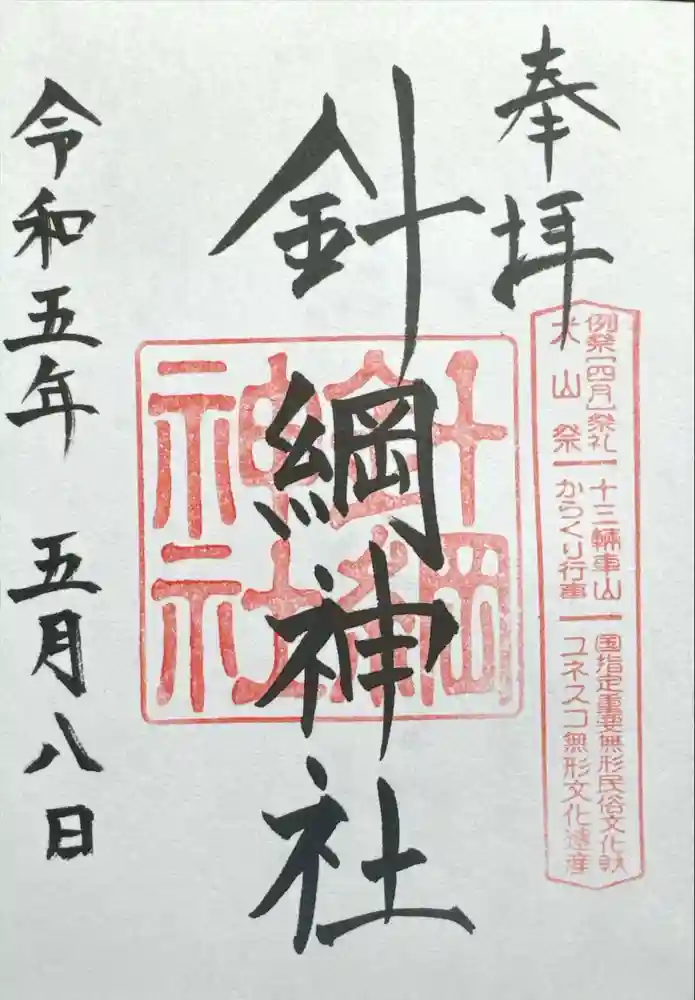 奉拝
例祭[四月]祭礼 十三輛車山 国指定重要無形民俗文化財
犬山祭 からくり行事 ユネスコ無形文化遺産
針綱神社
針綱神社
令和五年 五月八日